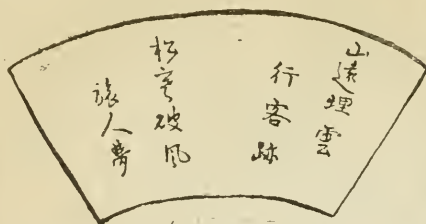 山遠埋雲
行客跡
松寒破風
旅人夢